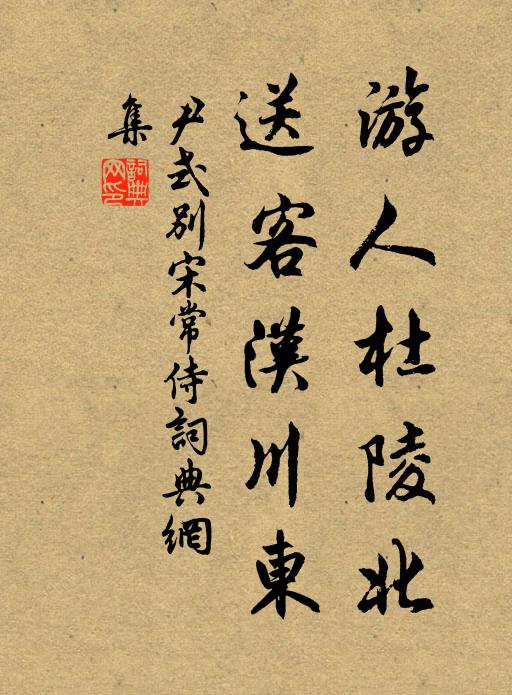 游人杜陵北
送客漢川東
尹式別宋常侍詞典網
集
詞典
网印